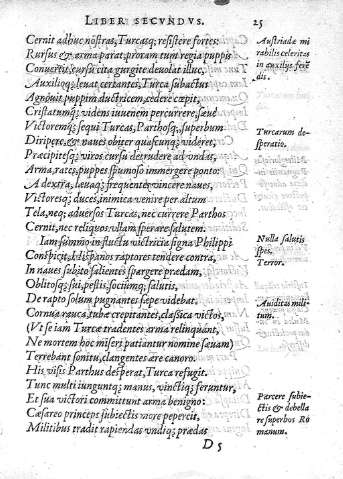 LIBER SECVNDVS. 25
Cernit adhuc nostras, Turcasq; resistere fortes:
Rursus & arma parat, proram tum regia puppis
Conuertit, cursu cita gurgite deuolat illuc,
Auxilioq; leuat certantes, Turca subactus
Agnouit puppim ductricem, cedere cœpit,
Cristatumq; videns iuuenem percurrere, sæuè
Victoremq; sequi Turcas, Parthosq; superbum
Diripere, & naues obiter quascunq; videret,
Præcipitesq; viros cursu detrudere ad vndas,
Arma, rates, puppes spumoso immergere ponto:
A dextra, læuaq; frequenter vincere naues,
Victoresq; duces, inimica venire per altum
Tela, neq; aduersos Turcas, nec currere Parthos
Cernit, nec reliquos vllam sperare salutem.
Iam summo in fluctu victricia signa Philippi
Conspicit, Hispanos raptores tendere contra,
In naues subitò salientes spargere prædam,
Oblitosq; sui, pestis, sociumq; salutis,
De rapto solum pugnantes sæpe videbat,
Cornua rauca, tubæ crepitantes, classica victos,
(Vt se iam Turcæ tradentes arma relinquant,
Ne mortem hoc miseri patiantur nomine sæuam)
Terrebant sonitu, clangentes ære canoro.
His visis Parthus desperat, Turca refugit.
Tunc multi iunguntq; manus, vinctiq; feruntur,
Et sua victori committunt arma benigno:
Cæsareo princeps subiectis more pepercit,
Militibus tradit rapiendas vndiq; prædas
D 5
Austriadæ mi
rabilis celeritas
in auxilijs feren
dis.
Turcarum de-
speratio.
Nulla salutis
spes.
Terror.
Auiditas mili-
tum.
Parcere subie-
ctis & debella
re superbos Ro
manum.